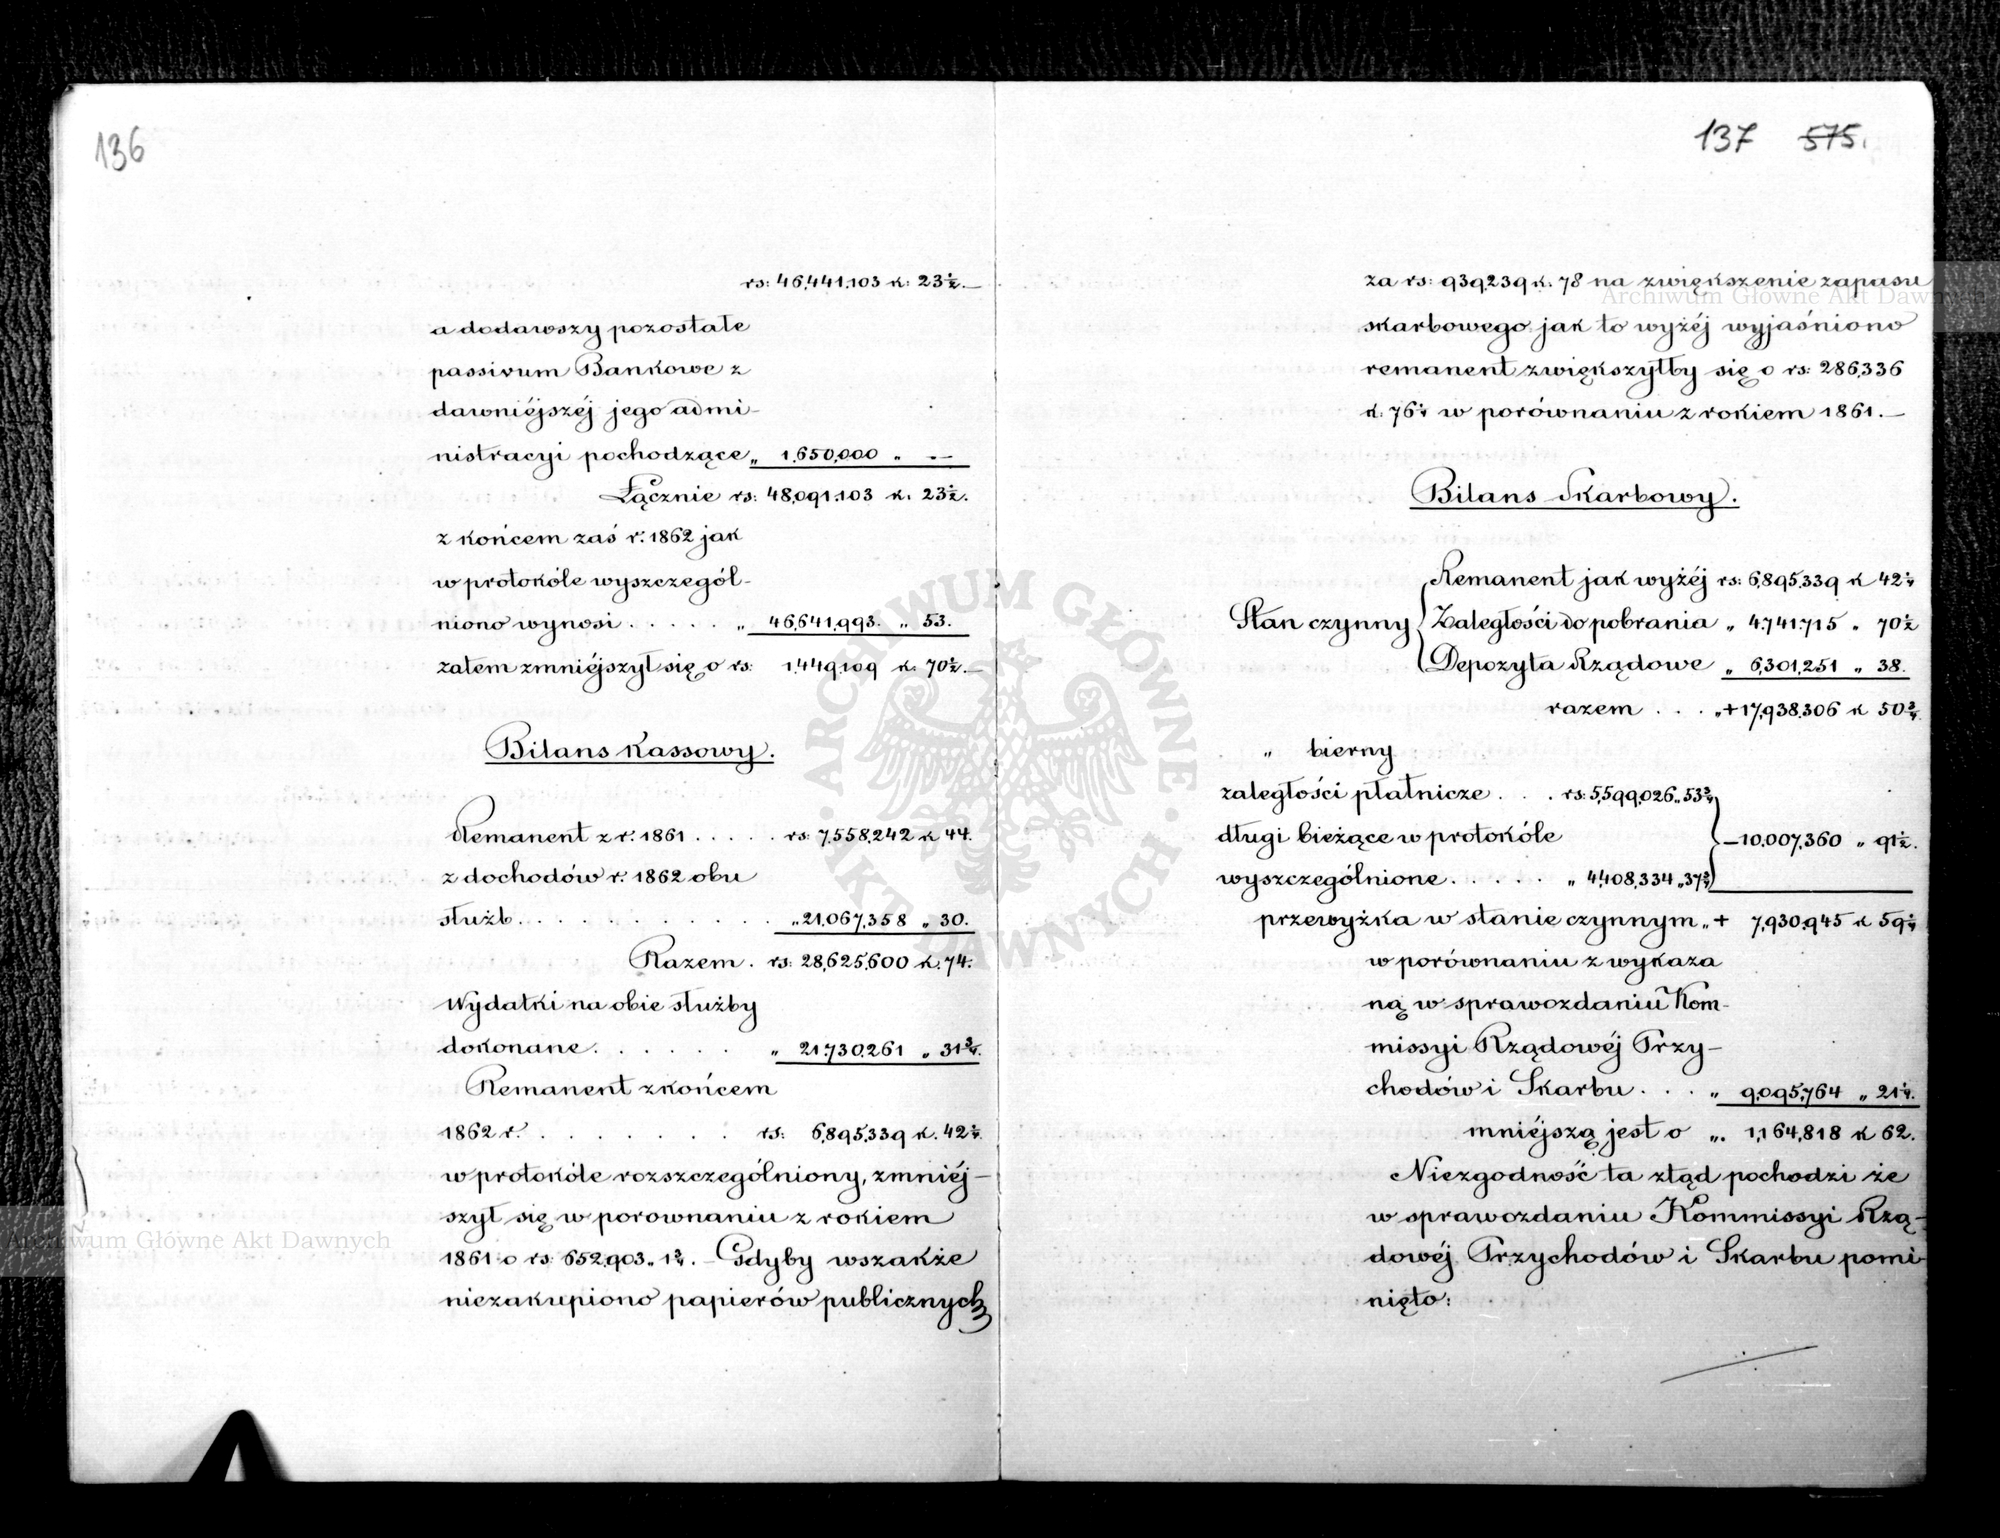 136
rs: 46,441,103 k: 23½.—
a dodawszy pozostałe
passivum Bankowe z
dawniéjszéj jego admi-
nistracyi pochodzące „ 1,650,000 „ -—
Łącznie rs: 48,091,103 k. 23½.
z końcem zaś r. 1862 jak
w protokóle wyszczegól-
niono wynosi . . . . . „ 46,641,993. „ 53.
zatem zmniéjszył się o rs: 1,449,109 k. 70½.—
Bilans Kassowy.
Remanent z r. 1861 . . . . . rs: 7,558,242 k 44.
z dochodów r. 1862 obu
służb . . . . . . . . . . . „ 21,067,358 „ 30.
Razem . rs: 28,625,600 k. 74.
Wydatki na obie służby
dokonane . . . . . . „ 21,730,261 „ 31¾.
Remanent z końcem
1862 r. . . . . . . . . rs: 6,895,339 k. 42¼.
w protokóle rozszczególniony, zmniéj-
szył się w porownaniu z rokiem
1861 o rs: 652,903 „ 1¾. — Gdyby wszakże
niezakupiono papierów publicznych
137 575.
za rs: 939,239 k. 78 na zwiększenie zapasu
skarbowego jak to wyżéj wyjaśniono
remanent zwiększyłby się o rs: 286,336
k: 76¼ w porównaniu z rokiem 1861.—
Bilans Skarbowy.
Remanent jak wyżéj rs: 6,895,339 k 42¼
Stan czynny Zaległości do pobrania „ 4,741,715 „ 70½
Depozyta Rządowe „ 6,301,251 „ 38.
razem . . . „ + 17,938,306 k 50¾.
„ bierny
zaległości płatnicze . . . rs: 5,599,026 „ 53¾
długi bieżące w protokóle — 10,007,360 „ 91½.
wyszczególnione . . . . . „ 4,408,334 „ 37¾
przewyżka w stanie czynnym „ + 7,930,945 k 59¼
w porównaniu z wykaza
ną w sprawozdaniu Kom-
missyi Rządowéj Przy-
chodów i Skarbu . . . „ 9,095,764 „ 21¼.
mniéjszą jest o „. 1,164,818 k 62.
Niezgodność ta ztąd pochodzi że
w sprawozdaniu Kommissyi Rzą-
dowéj Przychodów i Skarbu pomi-
nięto:
Archiwum Główne Akt Dawnych
Archiwum Główne Akt Dawnych
ARCHIWUM GŁÓWNE
AKT DAWNYCH